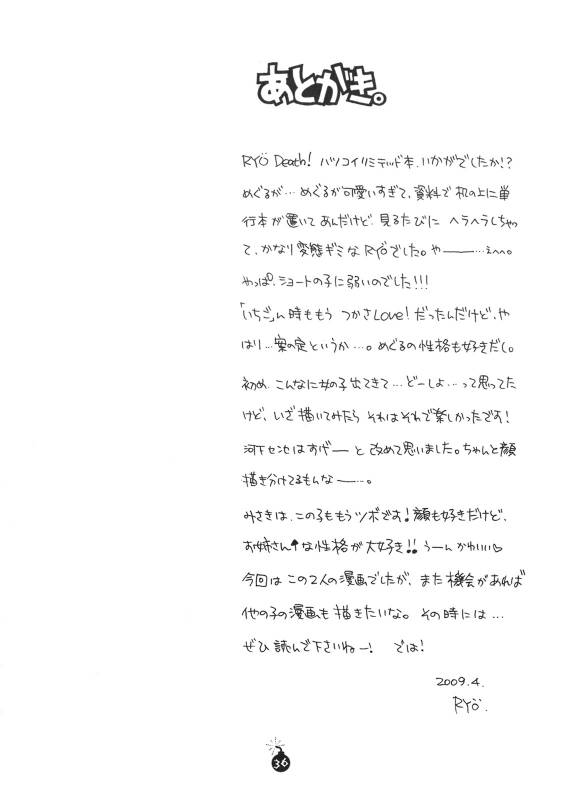 あとがき。
RYÖ Death! ハツコイリミテッド本、いかがでしたか!?
めぐるが…めぐるが可愛いすぎて、資料で机の上に単
行本が置いてあんだけど、見るたびに ヘラヘラしちゃっ
て、かなり変態ギミなRYÖでした。や――…えへへ。
やっぱ、ショートの子に弱いのでした!!!
「いちご」ん時ももう つかさLove! だったんだけど、や
はり…案の定というか…。めぐるの性格も好きだし。
初め、こんなに女の子出てきて…どーしよ…って思ってた
けど、いざ描いてみたら それはそれで楽しかったです!
河下センセはすげーと 改めて思いました。ちゃんと顔
描き分けてるもんなー…。
みさきは、この子ももうツボです!顔も好きだけど、
お姉さん↑な性格が大好き!!うーんかわいい♡
今回は この2人の漫画でしたが、また機会があれば
他の子の漫画も描きたいな。その時には…
ぜひ 読んで下さいねー! では!
2009.4.
RYÖ.
36